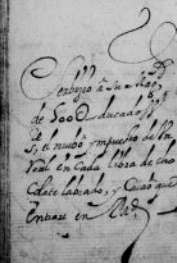 Serbizio a su Mag.d
de 500 ducados
de
s, el nuebo ympuesto de Un
Real en Cada libra de cho
Colate labrado, y Cacao que
Entrase en